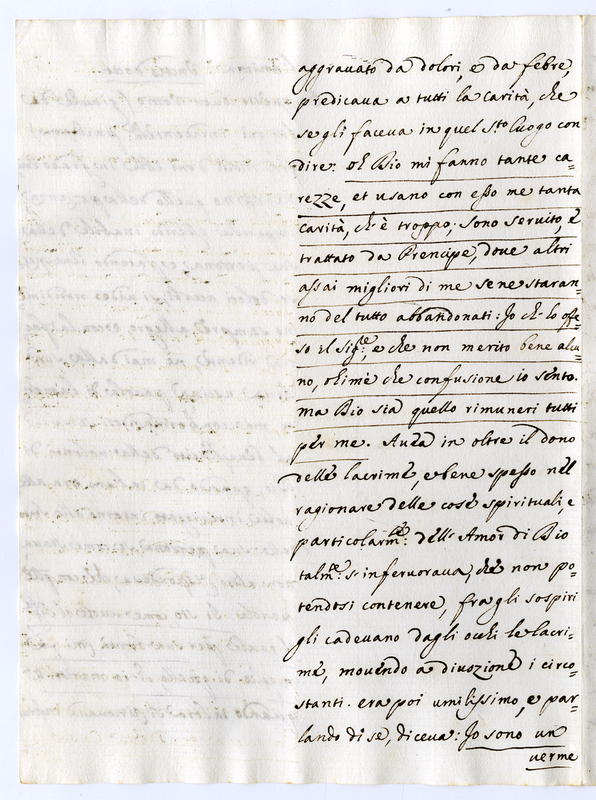 aggrauato da dolori, e da febre,
predicaua a tutti la carità, che
se gli faceua in quel S.to luogo con
dire: oh Dio mi fanno tante ca=
rezze, et usano con esso me tanta
carità, ch'è troppo; sono seruito, e
trattato da Prencipe, doue altri
assai migliori di me se ne staran=
no del tutto abbandonati: Io ch'hò offe=
so il Sig.re, e che non merito bene alcu=
no, ohimè che confusione io sento.
ma Dio sia quello rimuneri tutti
per me. Auea in oltre il dono
delle lacrime, e bene spesso nel
ragionare delle cose spirituali, e
particolarm.te dell'Amor di Dio
talm.te s'inferuoraua, che non po=
tendosi contenere, fra gli sospiri
gli cadeuano dagli occhi le lacri=
me, mouendo a diuozione i circo=
stanti. era poi umilissimo, e par=
lando di se, diceua: Io sono un
uerme